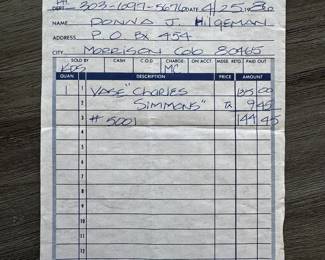 DEPT. 303-697-5676 DATE 4/25 1980
NAME Donna J. Hilgeman
ADDRESS P.O Bx 454
CITY Morrison Colo 80465
SOLD BY CASH C.O.D CHARGE ON ACCT. MDSE. RETD. PAID OUT
KDS MC
QUAN. DESCRIPTION PRICE AMOUNT
1 1 Vase "Charles 135 00
2 Simmons" Tx 9 45
3 # 5001 144 45
4
5
6
7
8
9
10
11
12